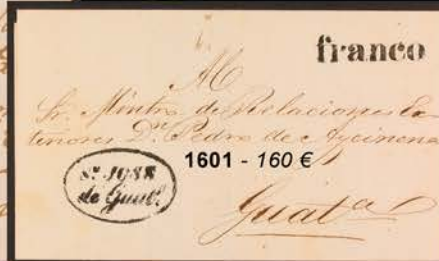 franco
Al
Sr. Mintro de Relaciones Ex-
teriores Dn Pedro de Aycinena
1601 - 160 €
Sn JOSE
de Guatl.
Guata